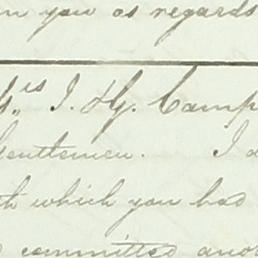 you as regards
J. & G. Camp
Gentlemen. I
which you had
committed ano